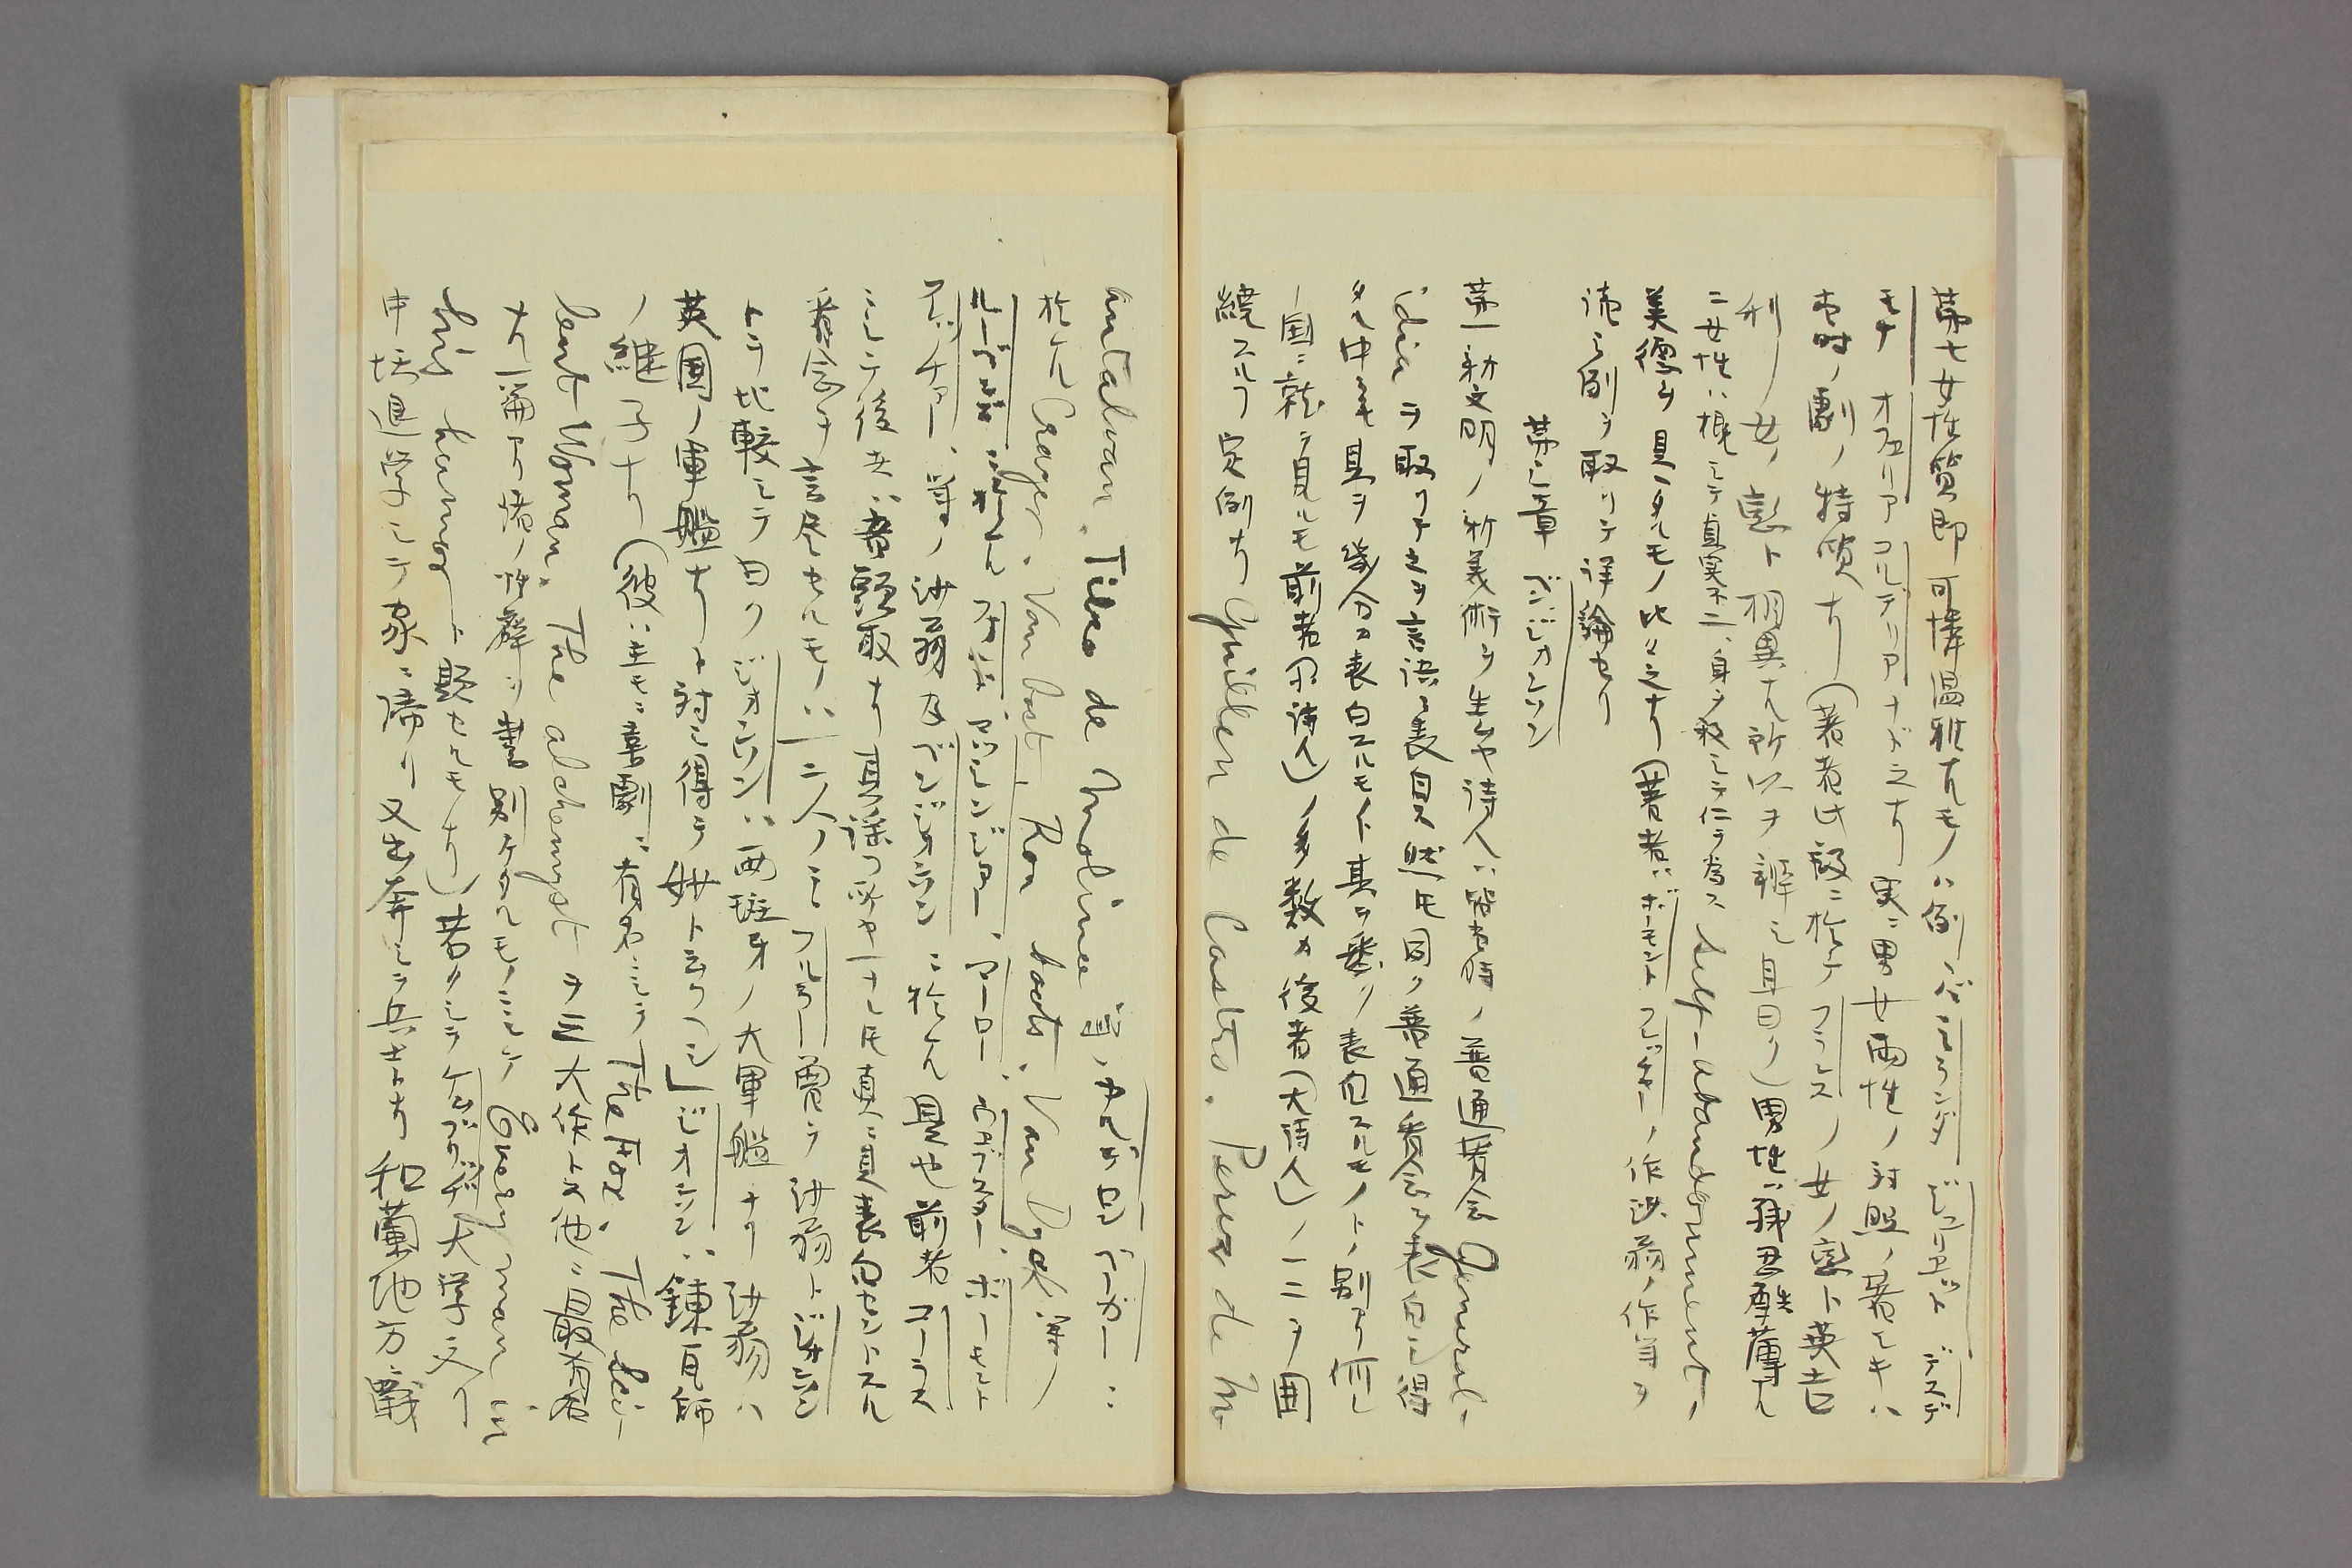 第七女性質即可憐温雅ナルモノハ例ノミランダ ジュリエット デスデ
モナ オフェリア コルデリアナド之ナリ 実ニ男女両性ノ対照ノ著シキハ
当時ノ劇ノ特質ナリ(著者此説ニ於テフランスノ女ノ恋ト英吉
利ノ女ノ恋ト相異ナル所以ヲ辨シ且曰ク)男性ハ残忍酷薄ナル
ニ女性ハ概シテ貞実不二、身ヲ殺シテ仁ヲ為ス Self-abandonment ノ
美徳ヲ具ヘタルモノ比々之ナリ(著者ハボーモント フレッチャーノ作沙翁ノ作等ヲ
徳之例ヲ取リテ詳論セリ
第三章 ベンジョンソン
第一新文明ノ新美術ヲ生ムヤ詩人ハ皆当時ノ普通着会 General
idea ヲ取リテ之ヲ言語ニ表白ス 然モ同ク普通着会ヲ表白シ得
タル中ニモ具ヲ幾分カ表白スルモノト其ヲ悉ク表白スルモノトノ別アリ 何レ
ノ国ニ就テ見ルモ前者(小詩人)ノ多数カ後者(大詩人)ノ一二ヲ囲
繞スルヲ定例ナリ Guillen de Castro. Perez de Mo
ntalvan. Tilso de Molina
於ケル Crayer. Van Oost. Ron bouts. Van Dyck 等)
フォード、マッシンジャー、マーロー、ウェブスター、ボーモント
フレッチャー、等ノ沙翁及ベンジョンソンニ於ケル是也 前者コーラス
ニシテ後者ハ音頭取ナリ 其謡フ所ヤ一ナレモ真ニ具表白セントスル
着会ヲ言尽セルモノハ一二人ノミ フルラー曽テ沙翁トジョンソン
トヲ比較シテ曰ク ジョンソンハ西班牙ノ大軍艦ナリ 沙翁ハ
英国ノ軍艦ナリト 対シ得テ妙ト云フヘシ」ジョンソンハ錬瓦師
ノ継子ナリ(彼ハ主モニ喜劇ニ有名ニシテ The Fox. The Sei-
lent Woman. The alchemyst ヲ三大作トス 他ニ最有名
ナル一篇アリ 諸ノ性癖ヲ書別ケタルモノニシテ Every man in
his humour ト題セルモノナリ)若クシテケムブリッヂ大学ニ入リ
中途退学シテ家ニ帰リ 又出奔シテ兵士トナリ 和蘭地方ニ戦